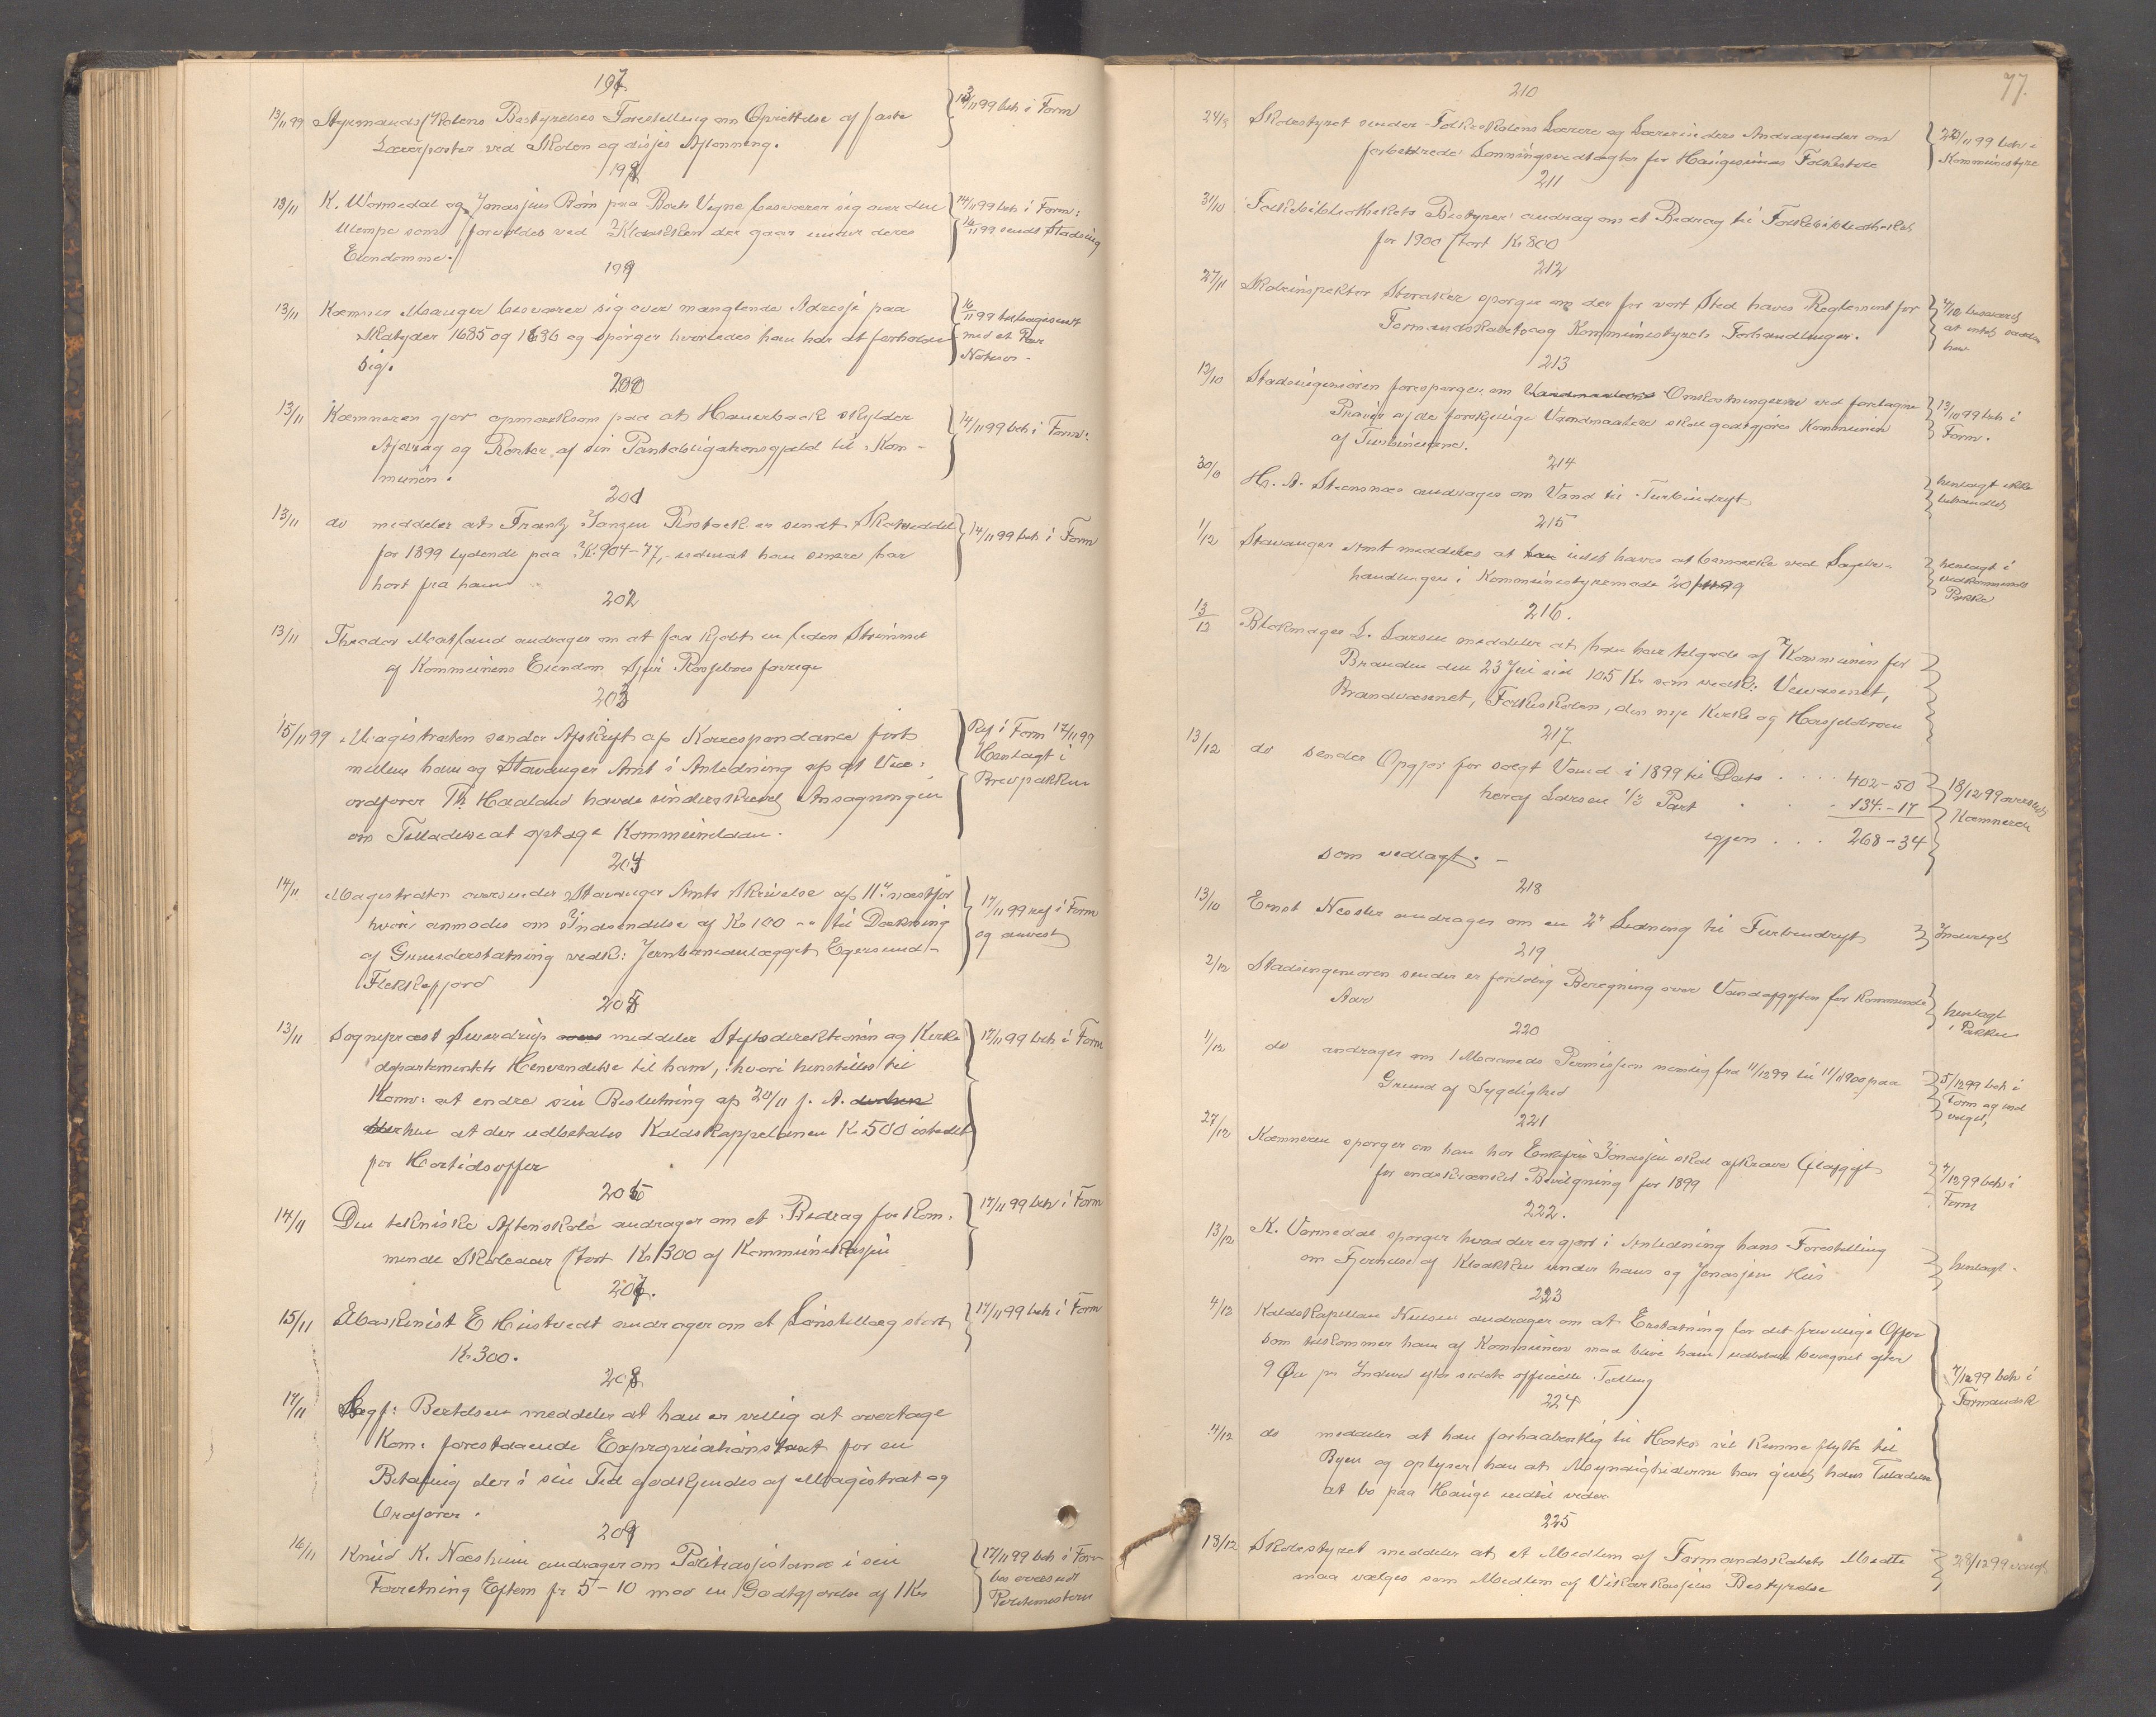 197.
13/11 99 Styrmandsskolens Bestyrelses Forestilling om Oprettelse af faste } 13/11 99 beh i Form
Lærerposter ved Skolen og disses Aflønning.
198
13/11 K. Wormedal og Jonassens Børn paa Vegne besværer sig over den } 14/11 99 beh i Form:
Ulempe som forvoldes ved Kloakken der gaar under deres 16/11 99 sendt Stadsing
Eiendomme.
199
13/11 Kæmner Mauger besværer sig over manglende Adresse paa } 16/11 99 tilbagesendt
Skatyder 1685 og 1636 og spørger hvorledes han har at forholde med et Par
sig. Notiser -
200
13/11 Kæmneren gjør opmærksom paa at Hauerback skylder } 14/11 99 beh i Form:
Afdrag og Renter af sin Pantobligationsgjæld til Kom-
munen.
201
13/11 do meddeler at Frantz Jansen Rosback er sendt Skatseddel } 14/11 99 beh i Form
for 1899 lydende paa Kr. 904-77, uden at han senere har
hørt fra ham
202
13/11 Theodor andrager om at faa kjøbt en liden Strimmel
af Kommunens Eiendom
203
15/11 99 Magistraten sender Afskrift af Korrespondance ført } Ref i Form 17/11 99
mellem ham og Stavanger Amt i Anledning af at Vice- Henlagt i
ordfører Th Haaland havde underskrevet Ansøgningen Brevpakken
om Tilladelse at optage Kommunelaan.
204
14/11 Magistraten oversender Stavanger Amts Skrivelse af 11' næstfør } 17/11 99 ref i Form
hvori anmodes om Indsendelse af Kr 100 - " til Dækning og anvist
af Grunderstatning vedk: Jernbaneanlægget Egersund-
Flekkefjord
205
13/11 Sogneprest Sverdrup meddeler Stiftsdirektionen og Kirke } 17/11 99 beh i Form
departementets Henvendelse til ham, hvori henstilles til
Kom: at endre sin Beslutning af 20/11 f. A.
at der udbetales Kaldskappelanen Kr. 500 istedet
for Høitidsoffer
206
14/11 Den tekniske Aftenskole andrager om et Bidrag for kom- } 17/11 99 beh i Form
mende Skoleaar stort Kr 1300 af Kommunekassen
207.
15/11 Maskinist E Huistvedt andrager om et Lønstillæg stort } 17/11 99 beh i Form
Kr 300.
208
17/11 Sagf: Bertelsen meddeler at han er villig at overtage
Kom. forestaaende Expropriationstaxt for en
Betaling der i sin Tid godkjendes af Magistrat og
Ordfører.
209
16/11 Knud K. Næsheim andrager om Politiassistance i sin } 17/11 99 beh i Form
Forretning Eftem fr 5-10 mod en Godtgjørelse af 1 Kr oversendt
Politimesteren
77.
210
24/8 Skolestyret sender Folkeskolens Lærere og Lærerinders Andragender om } 22/11 99 beh i
forbedrede Lønningsvedtægter for Haugesunds Folkeskole Kommunestyre
211
31/10 Folkebibliothekets Bestyrer andrag om et Bidrag til Folkebibliotheket
for 1900 stort Kr 800
212
27/11 Skoleinspektør Storaker spørger om der for vort Sted haves Reglement for } 7/12 besvaret
Formandskabets og Kommunestyrets Forhandlinger. at intet saadan
have
213
12/10 Stadsingeniøren forespørger om Omkostningerne ved foretagne } 13/10 99 beh i
Prøver af de forskjellige Vandmaalere skal godtgjøres Kommunen Form.
af Turbineierne.
214
30/8 H. A. Steensnæs andrager om Vand til Turbindrift } henlagt ikke
behandlet
215
1/12 Stavanger Amt meddeles at intet haves at bemærke ved Sagsbe- } henlagt i
handlingen i Kommunestyremøde 20/11 99 vedkommende
Pakke
216.
13/12 Blokmager L. Larsen meddeler at han har tilgode af Kommunen for
Branden den 23 Juli sid 105 Kr som vedk: Veivæsenet,
Brandvæsenet, Folkeskolen, den nye Kirke og
217
13/12 do sender Opgjør for solgt Vand i 1899 til Dato .... 402-50 } 18/12 99 oversendt
heraf Larsen 1/3 Part . . . 134.-17 Kæmneren
igjen ... 268-34
som vedlagt. -
218
13/10 Ernst Næsler andrager om en 2" Ledning til Turbindrift } Indvilget
219
2/12 Stadsingeniøren sender er foreløbig Beregning over Vandafgiften for kommende } henlagt
Aar i Pakken
220
1/12 do andrager om 1 Maaneds Permission nemlig fra 11/12 99 til 11/1 1900 paa } 5/12 99 beh i
Grund af Sygelighed Form og ind
vilget,
221
27/12 Kæmneren spørger om han hos Enkefru Jonassen skal afkræve Ølafgift } 7/12 99 beh i
for indskrænket Bevilgning for 1899 Form
222.
13/12 K. Vormedal spørger hvad der er gjort i Anledning hans Forestilling } henlagt.
om Fjernelse af Kloakken under hans og Jonassens Hus
223
4/12 Kaldskapellan Nielsen andrager om at Erstatning for det frivillige Offer
som tilkommer ham af Kommunen maa blive ham udbetalt beregnet efter } 7/12 99 beh i
9 Øre pr Indiv efter sidste officielle Tælling Formandsk
224
11/12 do meddeler at han forhaabentlig til Høsten vil kunne flytte til
Byen og oplyser han at Myndighederne har givet ham Tilladelse
at bo paa Hauge indtil videre
225
18/12 Skolestyret meddeler at et Medlem af Formandskabets Midte } 28/12 99 valgt
maa vælges som Medlem af Vikarkassens Bestyrelse